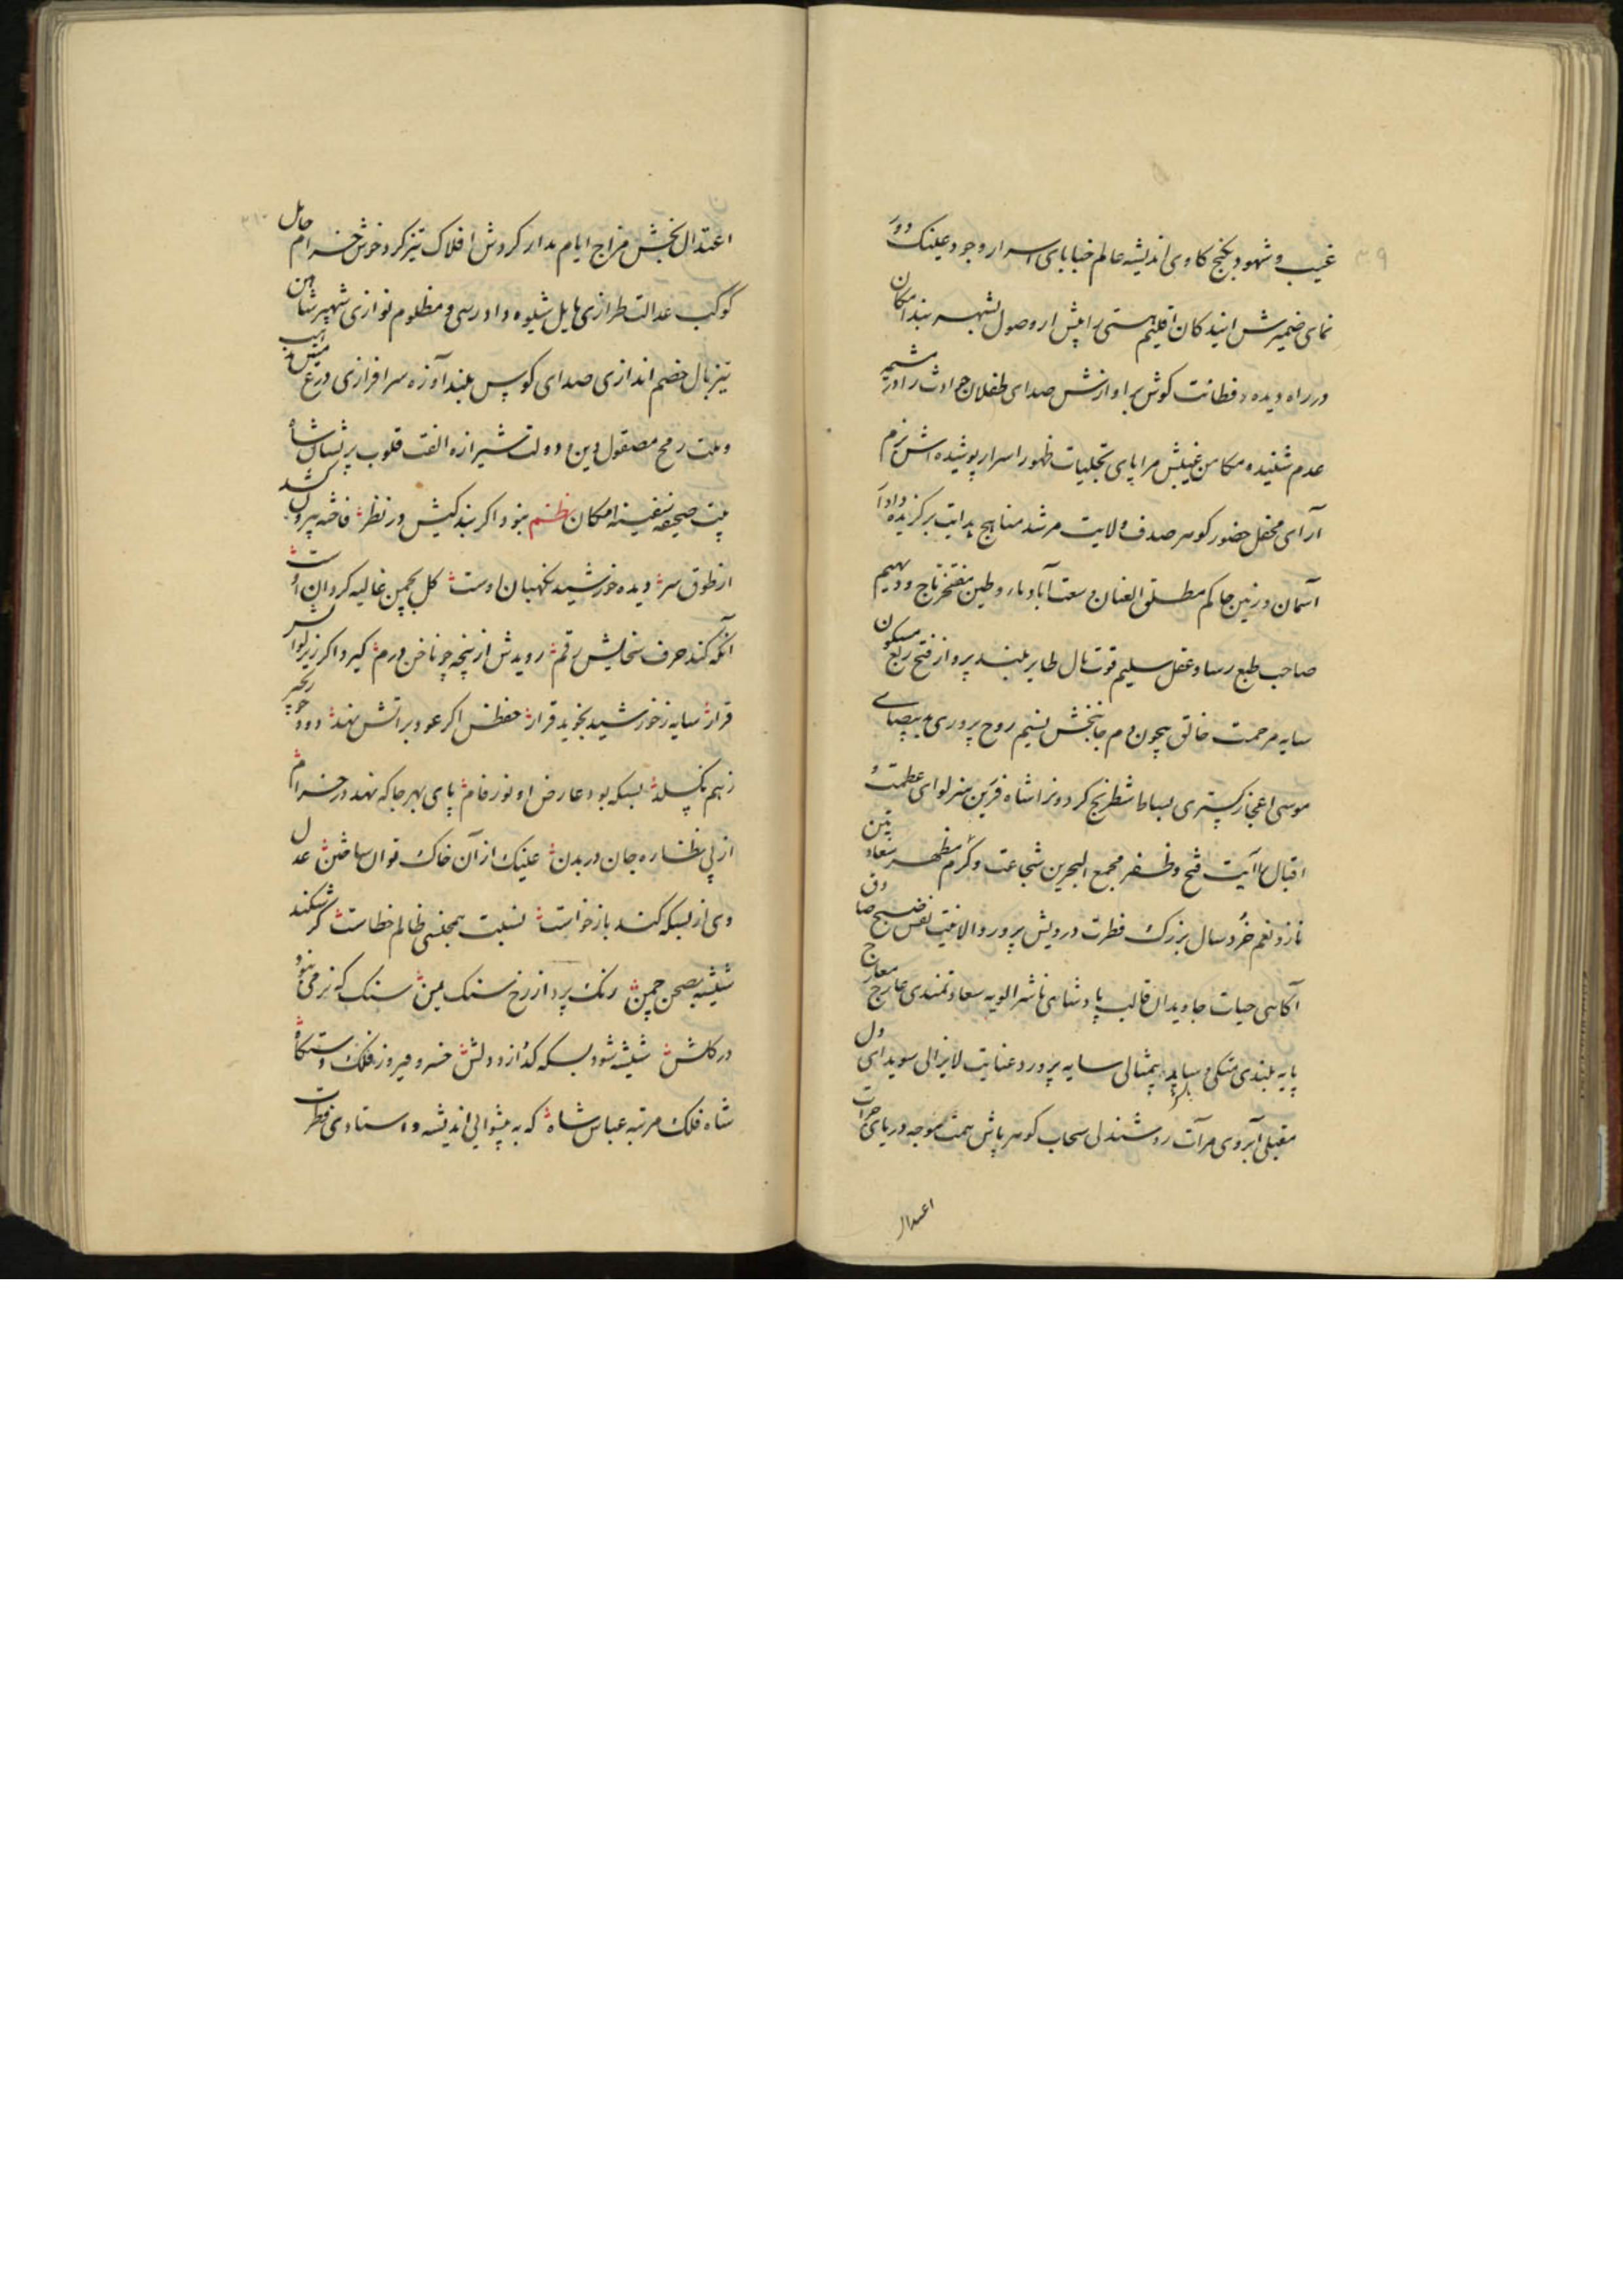 غیب و شهود بکنج کاوی اندیشه عالم خبایای اسرار وجود عینک دور
نمای ضمیرش آیندکان اقلیم هستی را پیش از وصول بشهر بند امکان
در راه دیده و فطانت کوش بر آوازش صدای طفلان حوادث را در مشیمه
عدم شنیده مکامن غیبش مرایای تجلیات ظهور اسرار پوشیده اش بزم
آرای محفل حضور کوهر صدف ولایت مرشد مناهج هدایت برکزیده داد آ
آسمان و زمین حاکم مطلق العنان وسعت آباد ماء و طین مفتخر تاج و دیهیم
صاحب طبع رسا و عقل سلیم قوت بال طایر بلند پرواز فتح ربع مسکون
سایه مرحمت خالق بیچون دم جانبخش نسیم روح پروری ید بیضای
موسی اعجاز کستری بساط شطرنج کردون را شاه فرزین منزلوای عظمت و
اقبال را آیت فتح و ظفر مجمع البحرین شجاعت و کرم مظهر سعادتین
ناز و نعم خرد سال بزرک فطرت درویش پرور والا نیت نفس صبح صادق
آکاهی حیات جاویدان قالب پادشاهی ناشر الویه سعادتمندی عارج معارج
پایه بلندی متکی وساده بیمثالی سایه پرورد عنایت لایزالی سویدای دل
مقبلی آبروی مرآت روشندلی سحاب کوهر پاش همت موجه دریای جرات
اعتدال
اعتدال بخش مزاج ایام مدار کردش افلاک تیز کرد خوش خرام حامل
کوکب عدالت طرازی هایل شیوه دادرسی و مظلوم نوازی شهپر شاهین
تیز بال خصم اندازی صدای کوس بلند آوازه سرافرازی درع
وملت رمح مصقول دین و دولت شیرازه الفت قلوب پریشان شاه
بیت صحیفه سفینه امکان نظم بنود اکر بند کیش در نظر فاخته بیرون کشد
از طوق سر دیده خورشید نکهبان اوست کل بچمن غالیه کردان اوست
آنکه کند حرف سخایش رقم رویدش از پنجه چو ناخن درم کیرد اکر زیر لوایش
قرار سایه ز خورشید بخوید قرار حفظش اکر عود بر آتش نهد دود چو زنجیر
ز هم نکسلد بسکه بود عارض او نور فام پای بهر جا که نهد در خرام
از پی نظاره جان در بدن عینک از آن خاک توان ساختن عدل
وی از بسکه کند باز خواست نسبت همجنسی ظالم خطاست کر شکند
شیشه بصحن چمن رنک پرد از رخ سنک یمن سنک که نرمی بنود
در کلش شیشه شود بسکه کدازد دلش خسرو فیروز فلک دستکاه
شاه فلک مرتبه عباس شاه که به پیشوایی اندیشه و استادی فطرت